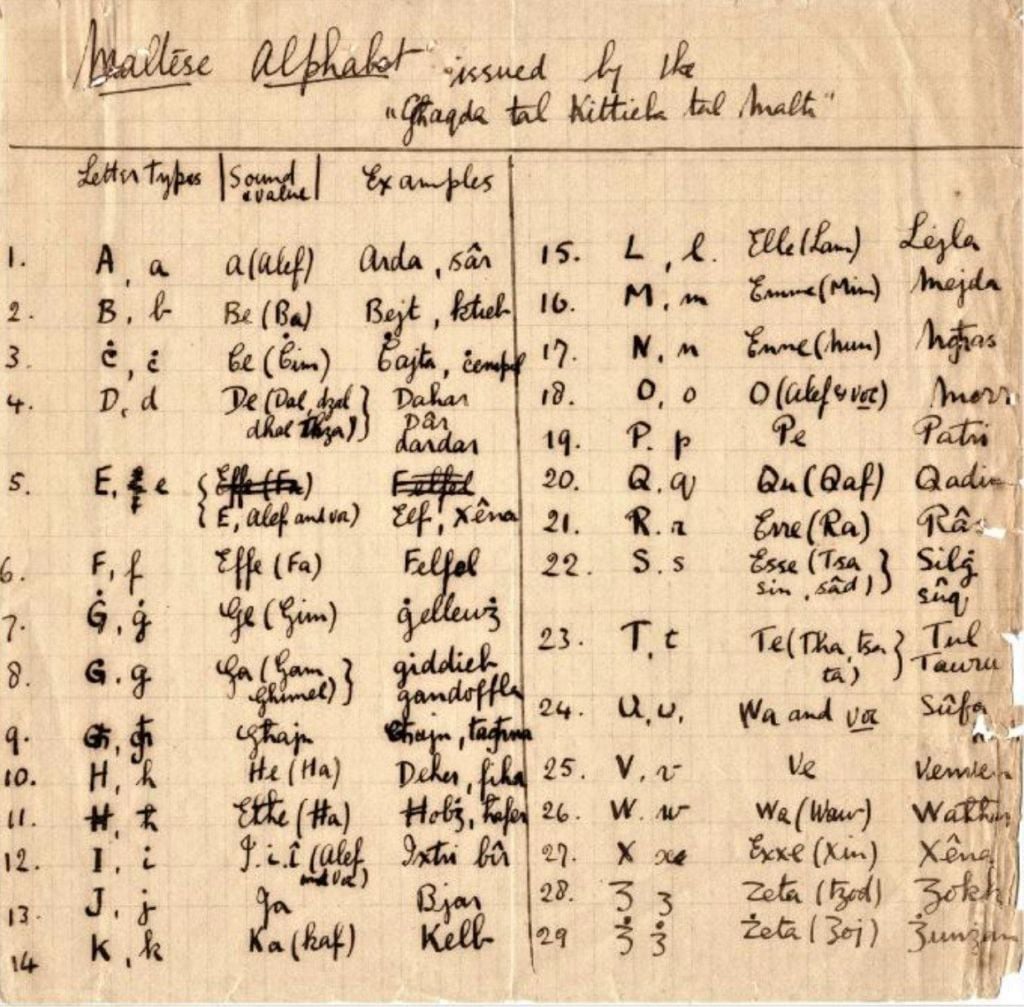 Maltese Alphabet issued by the
"Għaqda tal Kittieba tal Malti"
Letter types | Sound value | Examples
1. A, a a (Alef) Arda, sâr
2. B, b Be (Ba) Bejt, ktieb
3. Ċ, ċ Ċe (Ċim) Ċajta, ċempel
4. D, d De (Dal, dzal Dahar
dhal Dâr
dardar
5. E, e Effe (Fa) Felfel
E, Alef and voc) Elf, Xêna
6. F, f Effe (Fa) Felfel
7. Ġ, ġ Ġe (Ġim) ġellewż
8. G, g Ga (Gam giddieb
Ghimel) gandoffla
9. Għ, għ Għajn
10. H, h He (Ha) Deher, fiha
11. Ħ, ħ Ethe (Ħa) Ħobż, ħafer
12. I, i I. i. î (Alef Ixtri bîr
and voc)
13. J, j Ja Bjar
14 K, k Ka (kaf) Kelb
15. L, l. Elle (Lam) Lejla
16. M, m Emme (Mim) Mejda
17. N, n Enne (Nun) Ngħas
18. O, o O (Alef & voc) Morr
19. P. p Pe Patri
20. Q. q Qu (Qaf)
21. R. r Erre (Ra) Râs
22. S. s Esse (Tsa Silġ
sin, sâd) sûq
23. T, t Te (Tha, tsa Tul
ta)
24. U, u, Wa and voc Sûfa
25. V, v Ve
26. W. w Wa (Waw)
27. X x Exxe (Xin) Xêna
28. Ʒ ʒ Zeta (tzod)
29 Ʒ̇ ʒ̇ Żeta (Ʒoj)